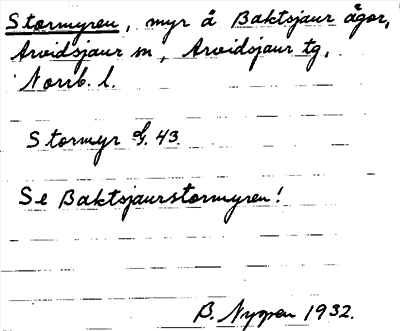 Stormyren, myr å Baktsjaur ägor,
Arvidsjaur sn, Arvidsjaur tg,
Norrb. l.
Stormyr 43.
Se Baktsjaurstormyren!
B. Nygren 1932.